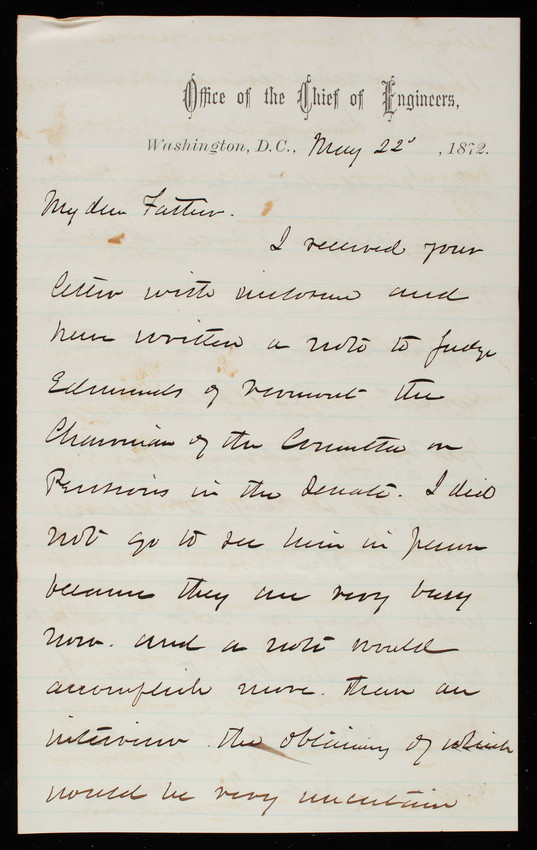 Office of the Chief of Engineers,
Washington, D.C., May 22d, 1872.
My dear Father.
I received your
letter with inclosure and
have written a note to Judge
Edmunds of Vermont the
Chairman of the Committee on
Pensions in the Senate. I did
not go to see him in person
because they are very busy
now. and a note would
accomplish more. than an
interview. the obtaining of which
would be very uncertain